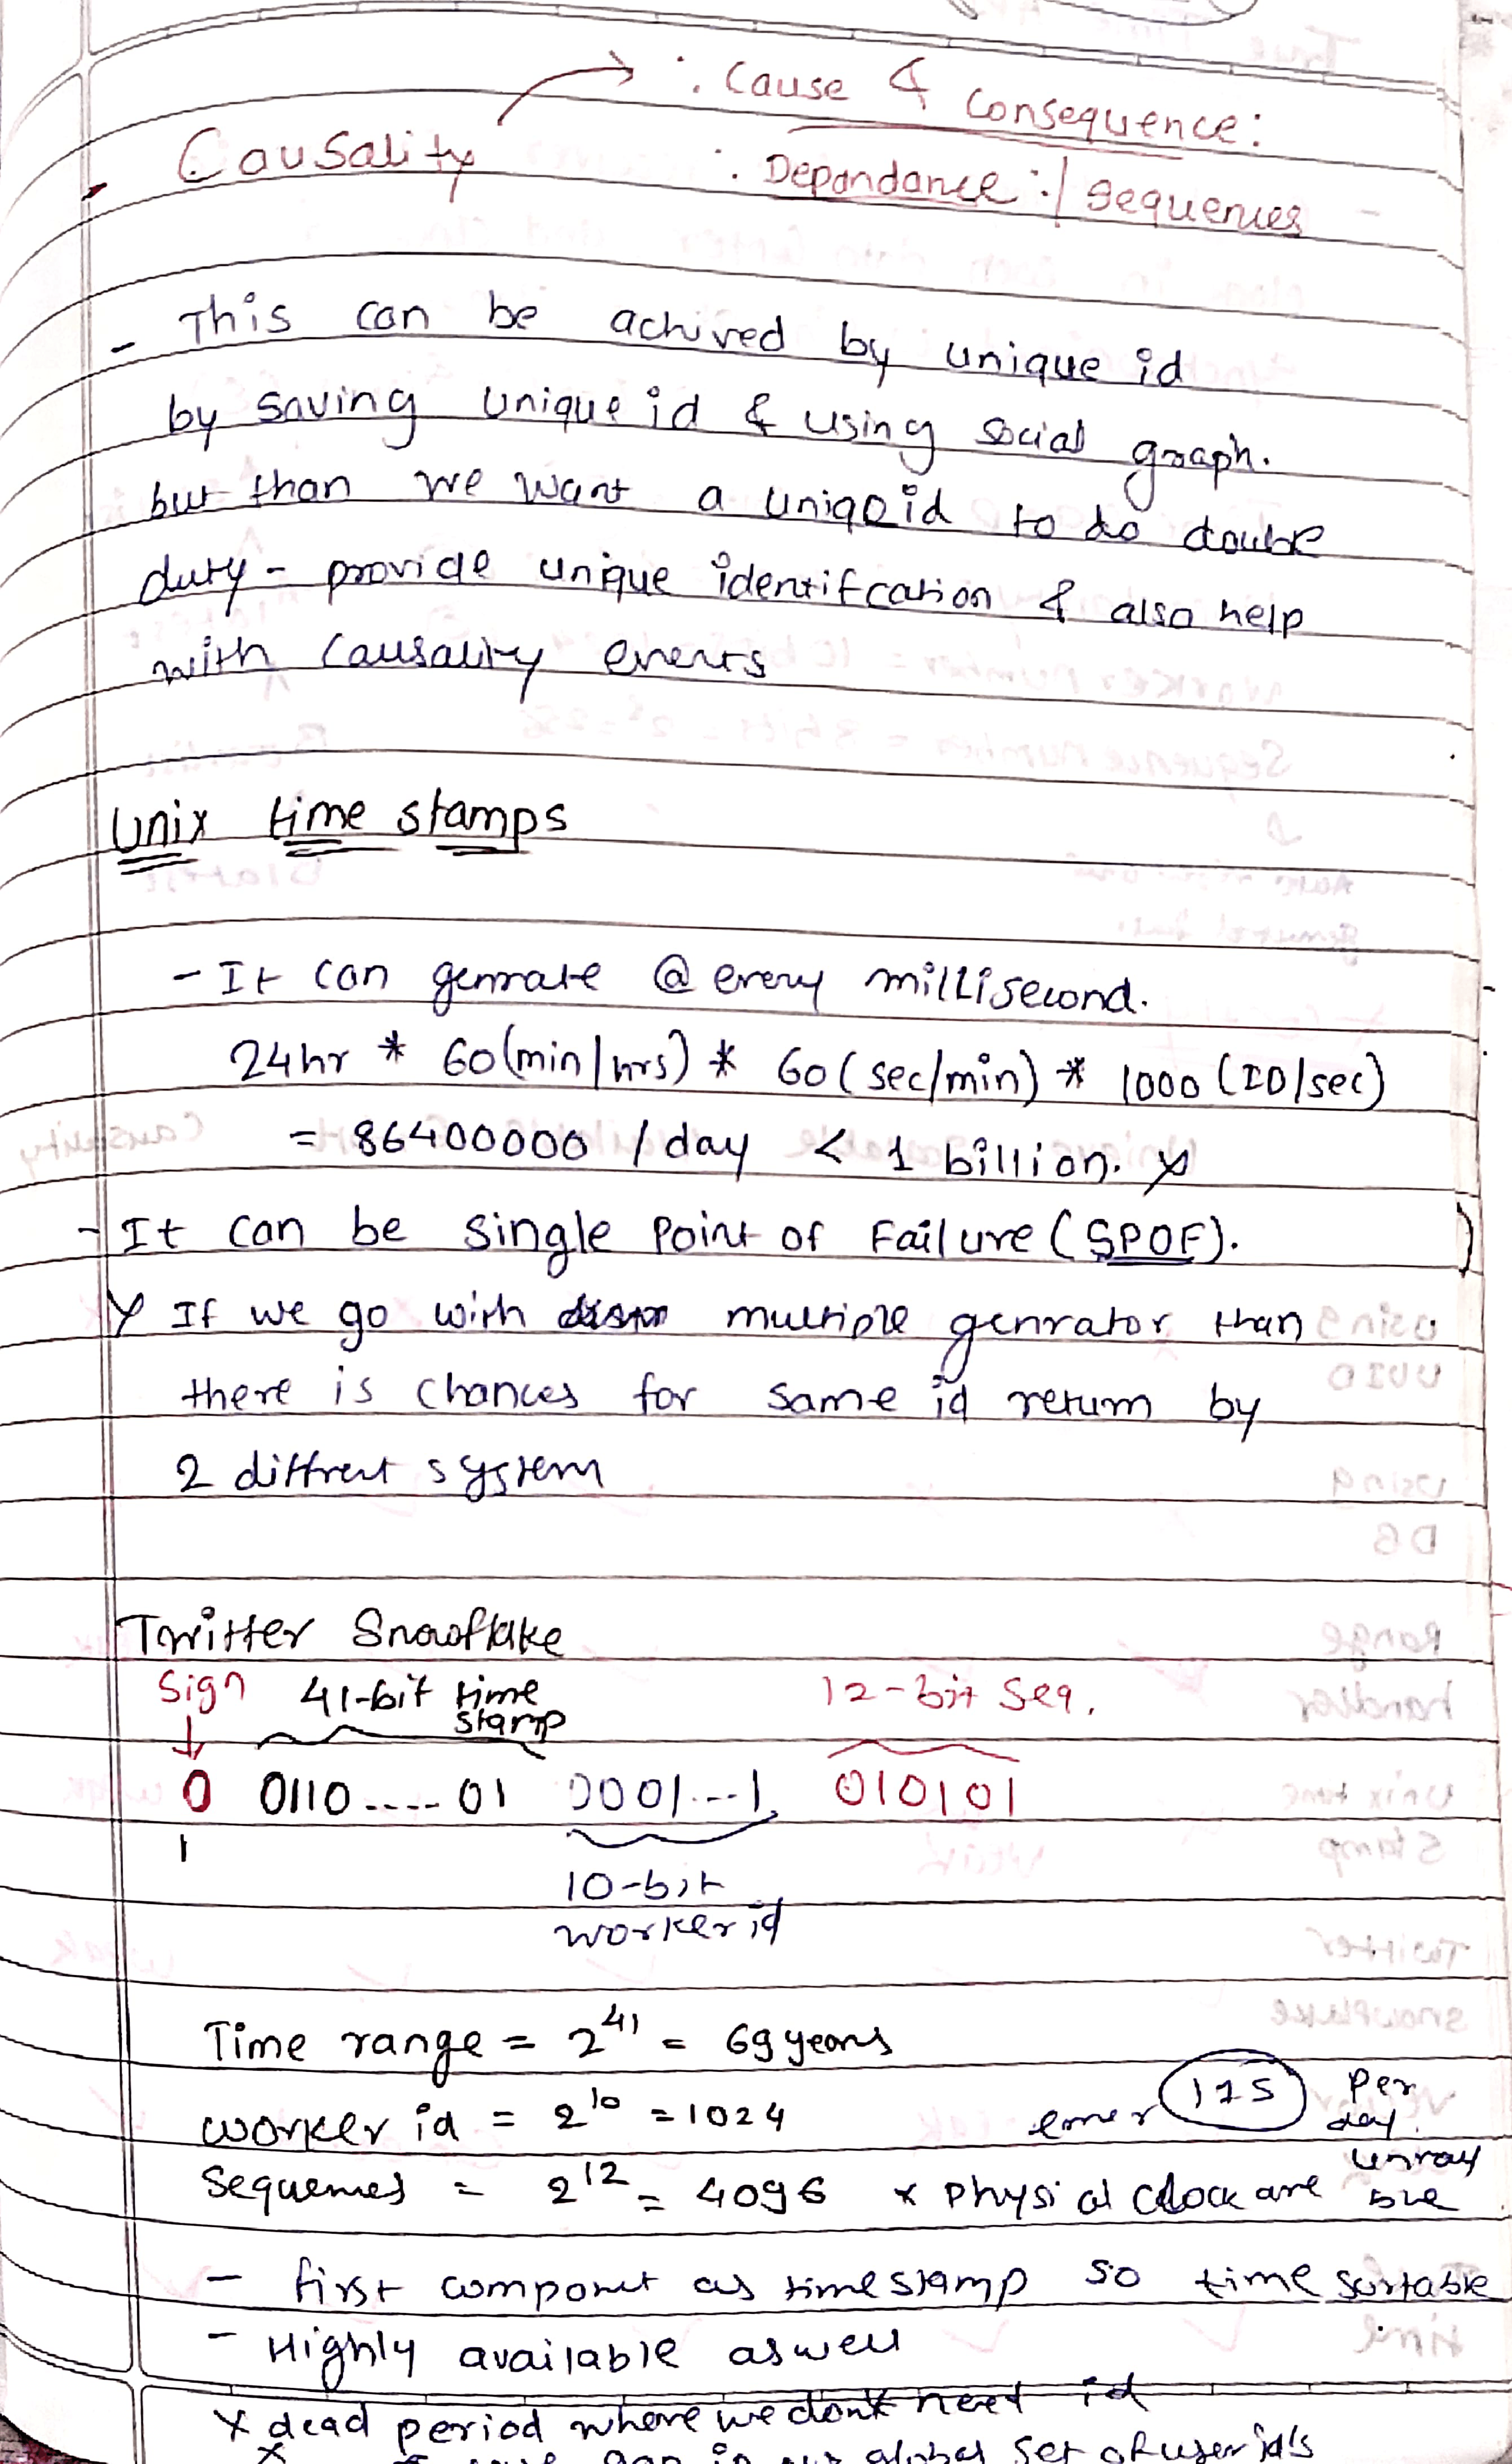 ∴ Cause & Consequence:
Causality : Depandance :/ Sequences
- This can be achived by unique id
by saving unique id & using social graph.
but than we want a uniqeid to do double
duty - provide unique identifcation & also help
with causality events
Unix time stamps
- It can genrate @ every millisecond.
24hr * 60(min/hrs) * 60(sec/min) * 1000 (ID/sec)
= 86400000 / day < 1 billion. x
- It can be single Point of Failure (SPOF).
x If we go with multiple genrator than
there is chances for same id return by
2 diffrent system
Twitter Snowflake
Sign 41-bit time stamp 12-bit Seq.
0 0110....01 0001...1 010101
1
10-bit
worker id
Time range = 2^41 = 69 years
worker id = 2^10 = 1024 per day.
Sequences = 2^12 = 4096 x Physical Clock are
- first component as timestamp so time sortable
- Highly available as well
x dead period where we dont need id
gap in our global set of user id's